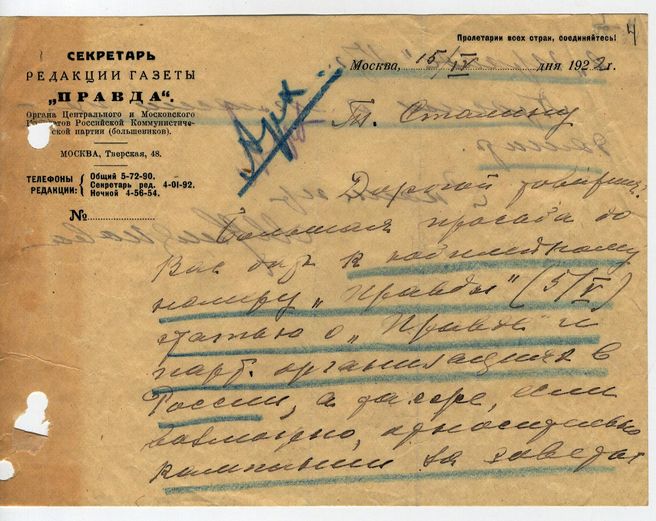 4
Пролетарии всех стран, соединяйтесь!
СЕКРЕТАРЬ
РЕДАКЦИИ ГАЗЕТЫ
„ПРАВДА“.
Органа Центрального и Московского
Российской Коммунистиче-
ской партии (большевиков).
МОСКВА, Тверская, 48.
ТЕЛЕФОНЫ РЕДАКЦИИ:
Общий 5-72-90.
Секретарь ред. 4-01-92.
Ночной 4-56-54.
№
Москва, 15/IV дня 1922г.
Арх
Тов. Сталину
Дорогой товарищ.
Большая просьба до
Вас дать к юбилейному
номеру „Правды“ (5/V)
статью о „Правде“ и
парт. организациях в
России, а также, если
возможно, относительно
кампании за